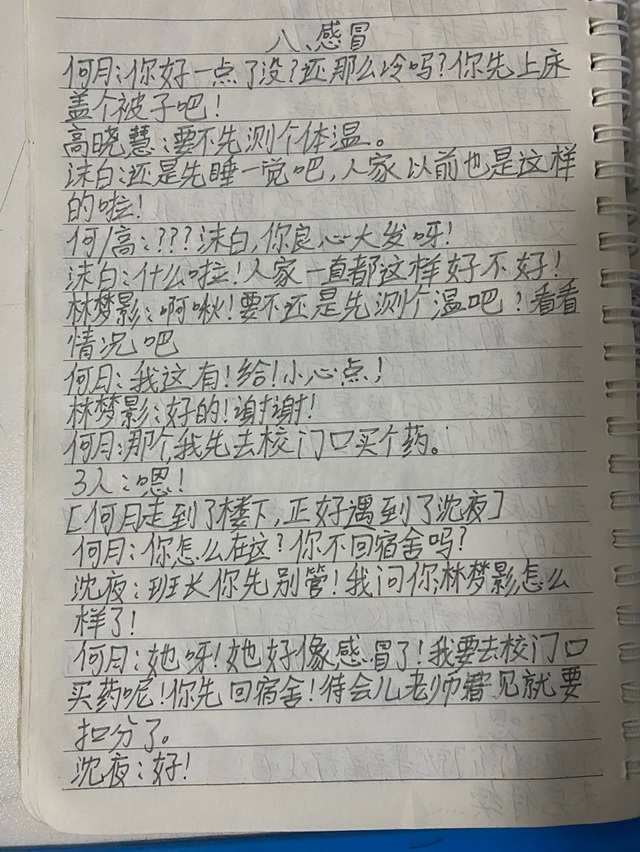 八、感冒
何月:你好一点了没?还那么冷吗?你先上床
盖个被子吧!
高晓慧:要不先测个体温。
沫白:还是先睡一觉吧,人家以前也是这样
的啦!
何/高:???沫白,你良心大发呀!
沫白:什么啦!人家一直都这样好不好!
林梦影:啊啾!要不还是先测个温吧?看看
情况吧
何月:我这有!给!小心点!
林梦影:好的!谢谢!
何月:那个我先去校门口买个药。
3人:嗯!
[何月走到了楼下,正好遇到了沈夜]
何月:你怎么在这?你不回宿舍吗?
沈夜:班长你先别管!我问你林梦影怎么
样了!
何月:她呀!她好像感冒了!我要去校门口
买药呢!你先回宿舍!待会儿老师看见就要
扣分了。
沈夜:好!